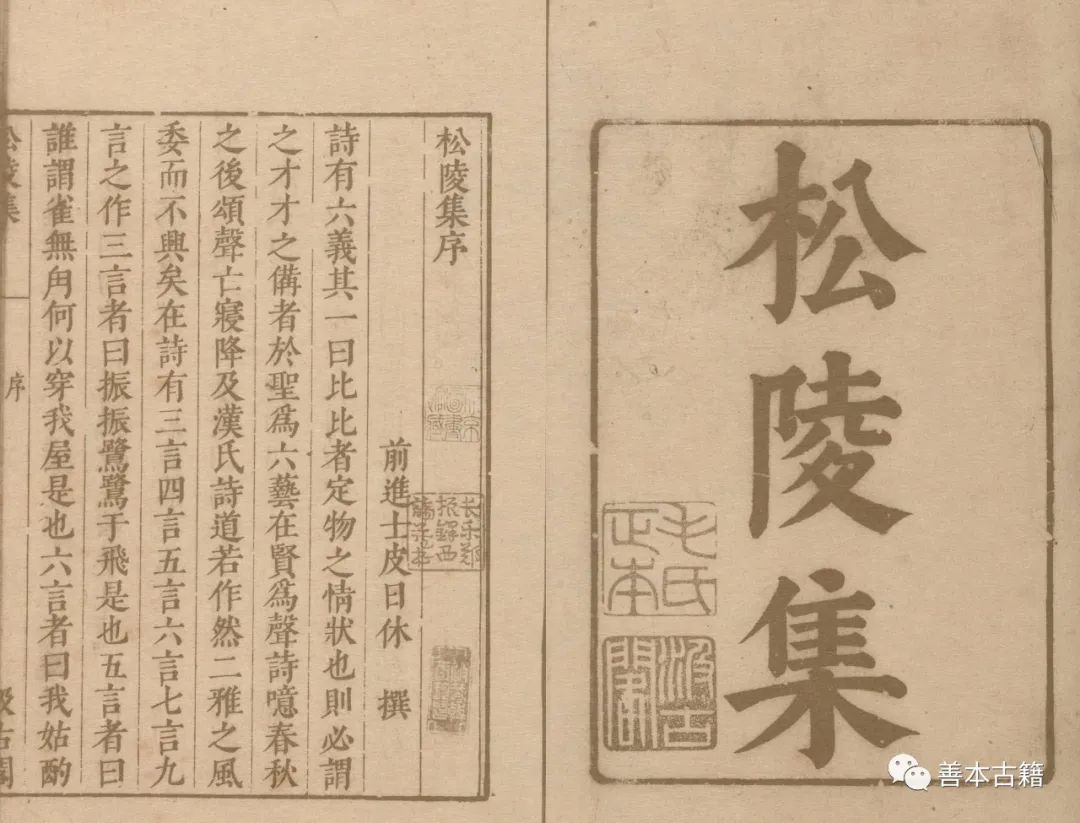 松陵集
毛氏正本
汲古閣
松陵集序
前進士皮日休 撰
詩有六義其一曰比比者定物之情狀也則必謂
之才才之備者於聖爲六藝在賢爲聲詩噫春秋
之後頌聲亡寢降及漢氏詩道若作然二雅之風
委而不興矣在詩有三言四言五言六言七言九
言之作三言者曰振振鷺鷺于飛是也五言者曰
誰謂雀無角何以穿我屋是也六言者曰我姑酌
松陵集
序
汲古閣
长乐郑
振铎西
諦藏书
善本古籍